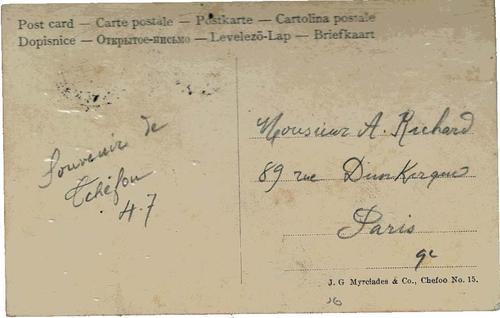 Post card — Carte postale — Postkarte — Cartolina postale
Dopisnice — Открытое-письмо — Levelező-Lap — Briefkaart
Souvenir de
Tchéfou
47
Monsieur A. Richard
89 rue Dunkerque
Paris
9e
J. G Myrciades & Co., Chefoo No. 15.